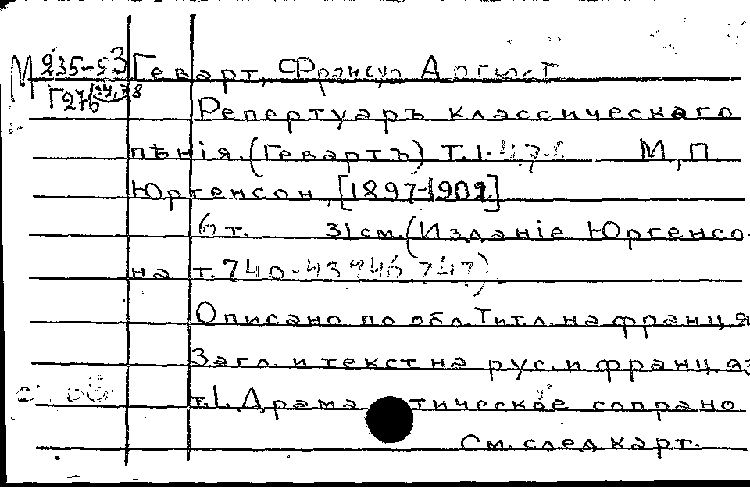 М 235-53 Геварт, Франсуа Август
Г276
Репертуаръ классическаго
пѣнія. (Гевартъ) Т. 1-4,7-8 М., П.
Юргенсон, [1897-1902]
6 т. 31 см. (Изданіе Юргенсо-
на т. 740-43 746, 747)
Описано по обл. Тит. л. на франц. яз
Загл. и текст на рус. и франц. яз
т. 1. Драматическое сопрано
См. след карт.